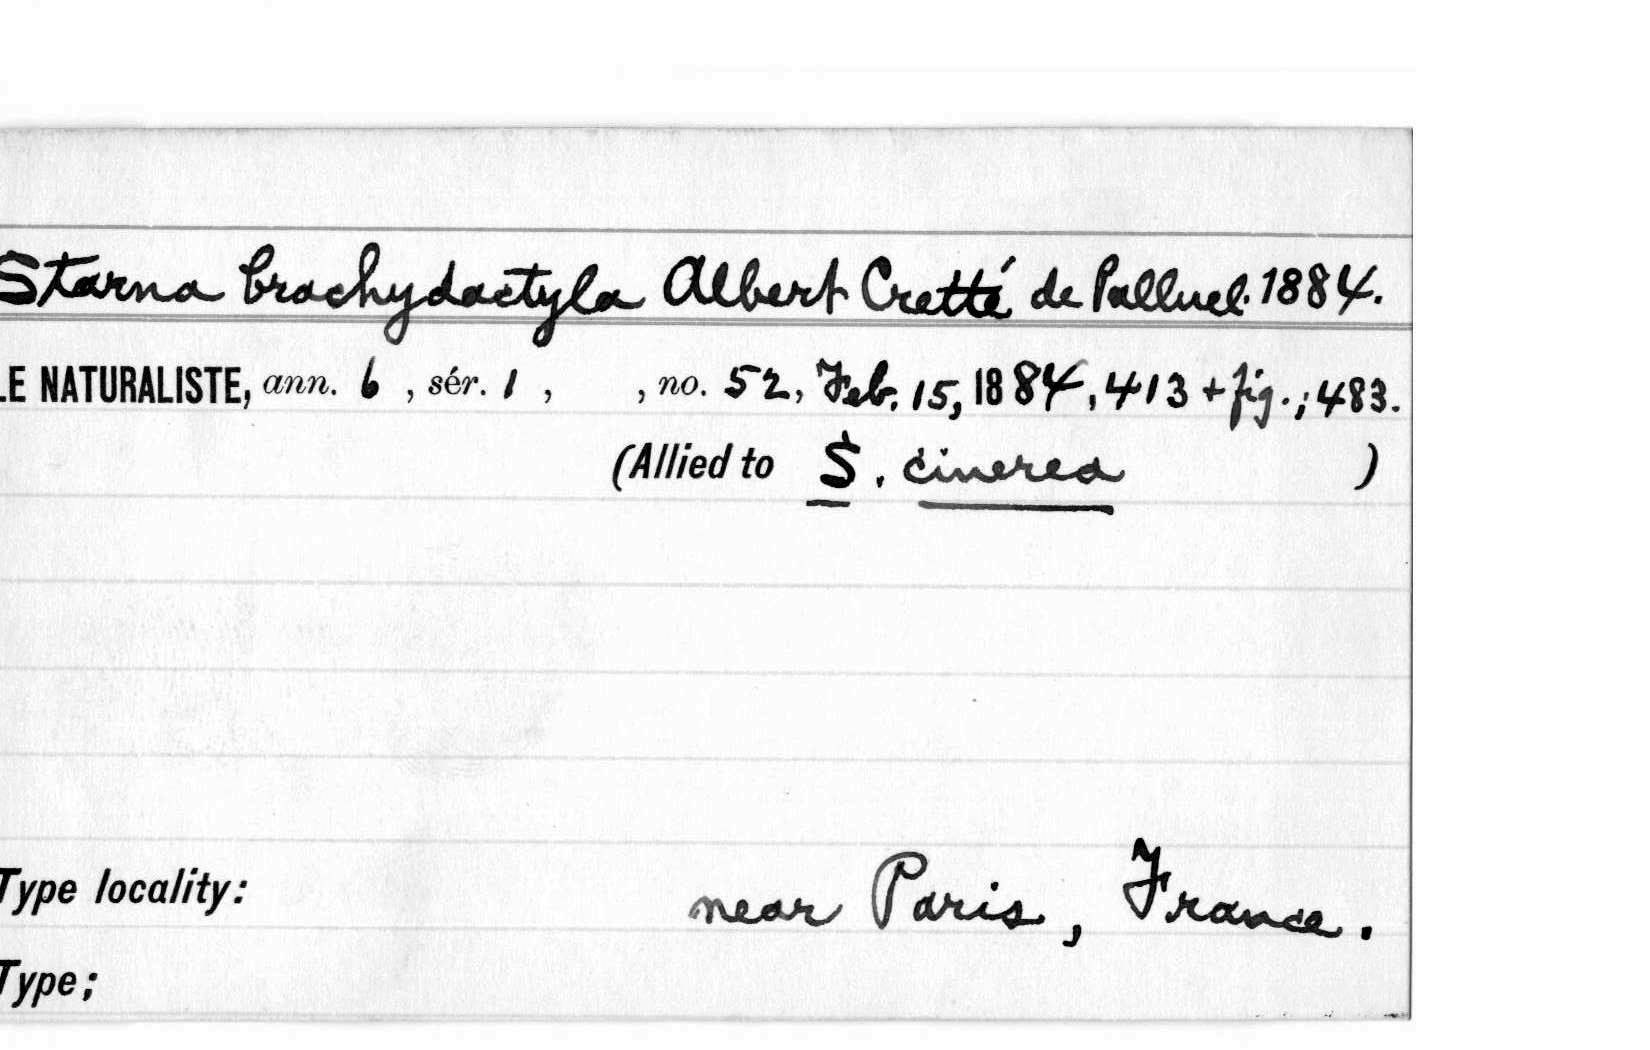 Starna brachydactyla Albert Cretté de Palluel. 1884.
LE NATURALISTE, ann. 6 , sér. 1 , , no. 52, Feb. 15, 1884, 413 + fig.; 483.
(Allied to S. cinerea )
Type locality: near Paris, France.
Type;